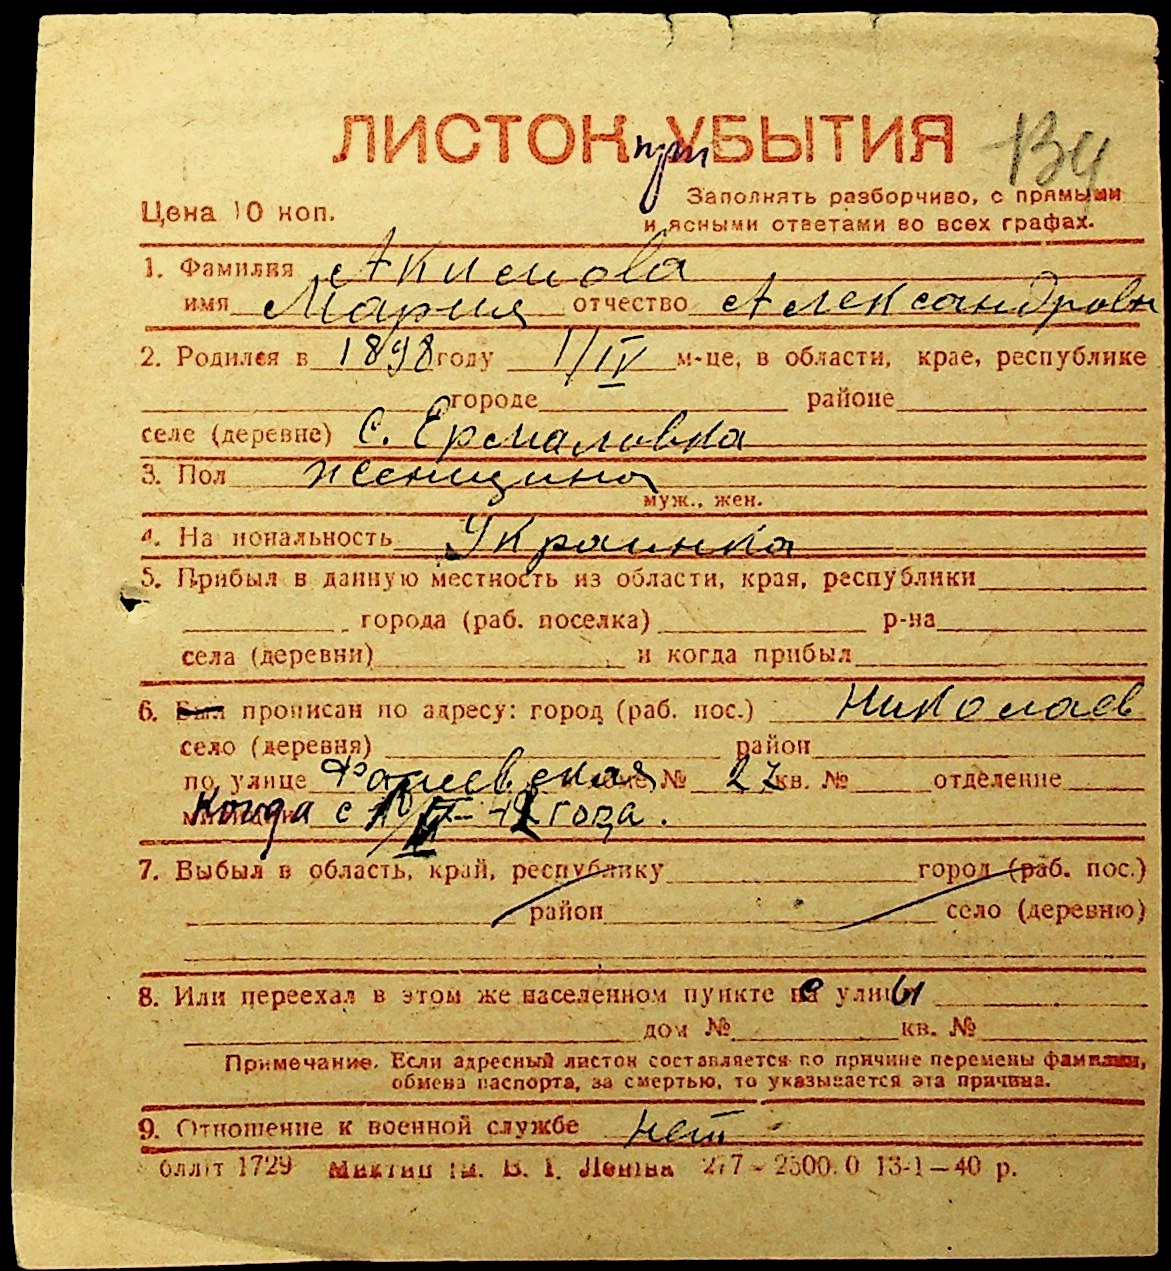 ЛИСТОК при УБЫТИЯ 134
Цена 10 коп.
Заполнять разборчиво, с прямыми
и ясными ответами во всех графах.
1. Фамилия Акимова
имя Мария отчество Александровн
2. Родился в 1898 году 1/IV м-це, в области, крае, республике
городе районе
селе (деревне) с. Ермаловка
3. Пол женщина
муж., жен.
4. Национальность Украинка
5. Прибыл в данную местность из области, края, республики
города (раб. поселка) р-на
села (деревни) и когда прибыл
6. Был прописан по адресу: город (раб. пос.) Николаев
село (деревня) район
по улице № 27 кв. № отделение
Когда с года.
7. Выбыл в область, край, республику город (раб. пос.)
район село (деревню)
8. Или переехал в этом же населенном пункте с улицы
дом № кв. №
Примечание. Если адресный листок составляется по причине перемены фамилии,
обмена паспорта, за смертью, то указывается эта причина.
9. Отношение к военной службе нет
Обллiт 1729 Миктип iм. В. I. Ленiна 277–2500.0 13-1–40 р.